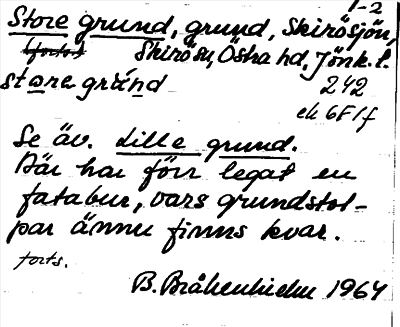 1-2
Store grund, grund, Skirösjön,
(forts.) Skirö sn, Östra hd, Jönk.l.
store gränd 242
ek 6F1f
Se äv. Lille grund.
Där har förr legat en
fatabur, vars grundstol-
par ännu finns kvar.
forts.
B. Bråkenhielm 1964